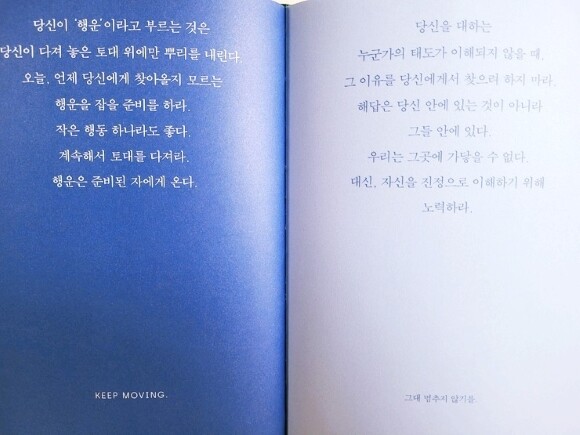 당신이 '행운'이라고 부르는 것은
당신이 다져 놓은 토대 위에만 뿌리를 내린다.
오늘, 언제 당신에게 찾아올지 모르는
행운을 잡을 준비를 하라.
작은 행동 하나라도 좋다.
계속해서 토대를 다져라.
행운은 준비된 자에게 온다.
KEEP MOVING.
당신을 대하는
누군가의 태도가 이해되지 않을 때,
그 이유를 당신에게서 찾으려 하지 마라.
해답은 당신 안에 있는 것이 아니라
그들 안에 있다.
우리는 그곳에 가닿을 수 없다.
대신, 자신을 진정으로 이해하기 위해
노력하라.
그대 멈추지 않기를.